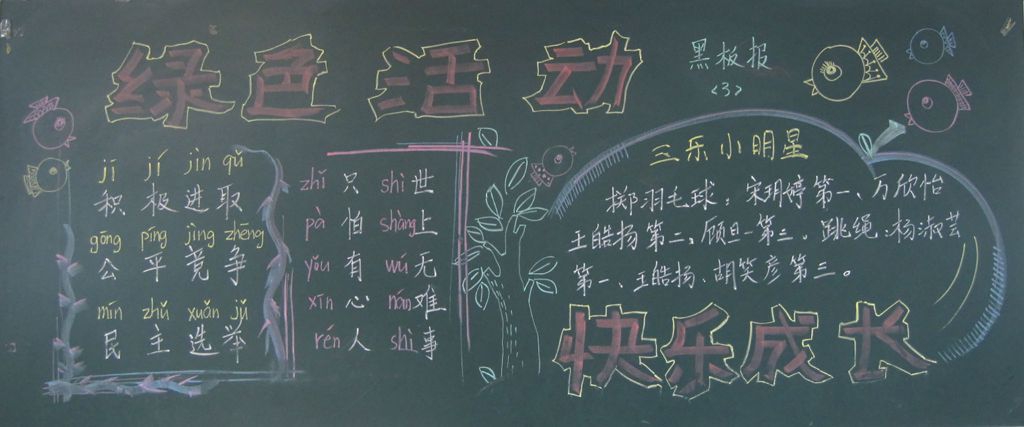 绿色活动
黑板报
<3>
jī jí jìn qǔ
积极进取
gōng píng jìng zhēng
公平竞争
mín zhǔ xuǎn jǔ
民主选举
zhǐ 只 shì 世
pà 怕 shàng 上
yǒu 有 wú 无
xīn 心 nán 难
rén 人 shì 事
三乐小明星
掷羽毛球：宋玥婷第一、万欣怡
王皓扬第二、顾旦一第三。跳绳：杨淑芸
第一、王皓扬、胡笑彦第三。
快乐成长